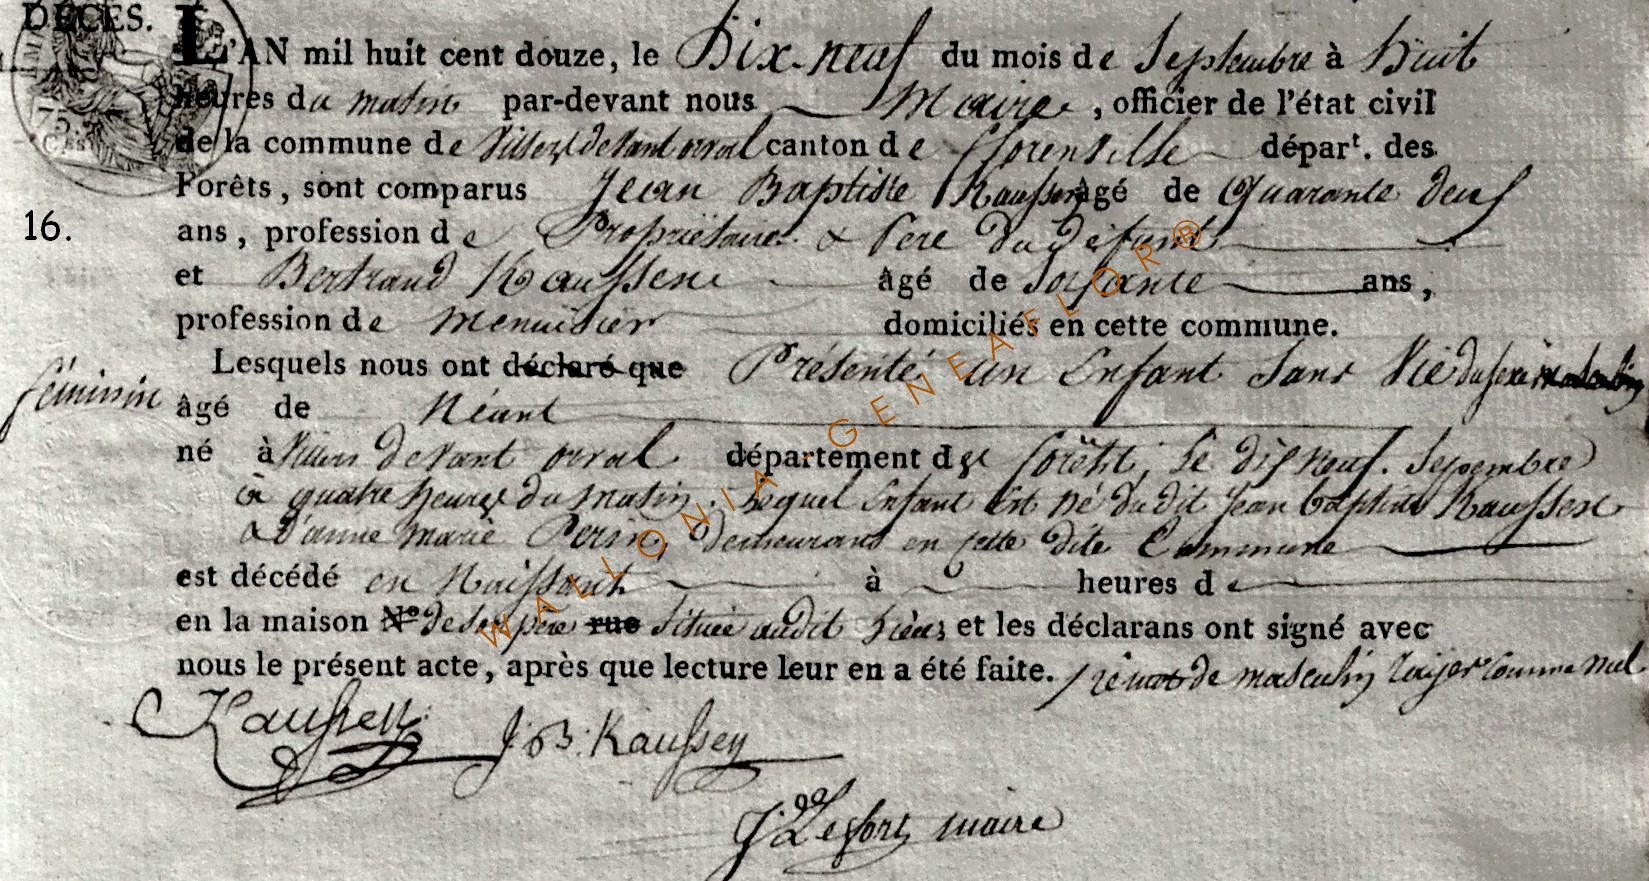 DÉCÈS.
L'AN mil huit cent douze, le Dix-neuf du mois de Septembre à huit
heures du matin par-devant nous Maire, officier de l'état civil
de la commune de Villers devant orval canton de florenvilleépart. des
Forêts, sont comparus Jean Baptiste Kaussen âgé de Quarante deux
16.
ans, profession de Propriétaire & Pere du défunt
et Bertrand Kaussen âgé de Soixante ans,
profession de Menuisier domiciliés en cette commune.
Lesquels nous ont déclaré que Présenté un Enfant Sans Vie du sexe masculin
féminin
âgé de Néant
né à Villers devant orval département des forêts, le dix Neuf. Septembre
à quatre heures du matin, lequel Enfant est né du dit jean baptiste Kaussen
& d'anne marie Perin, demeurant en cette dite Commune
est décédé en Naissant à heures de
en la maison N° de ses père rue située audit lieu, et les déclarans ont signé avec
nous le présent acte, après que lecture leur en a été faite. le mot de masculin rayer comme nul
Kaussen J.B. Kaussen
J Lefort maire
WALLONIA-GENEAFLOR®